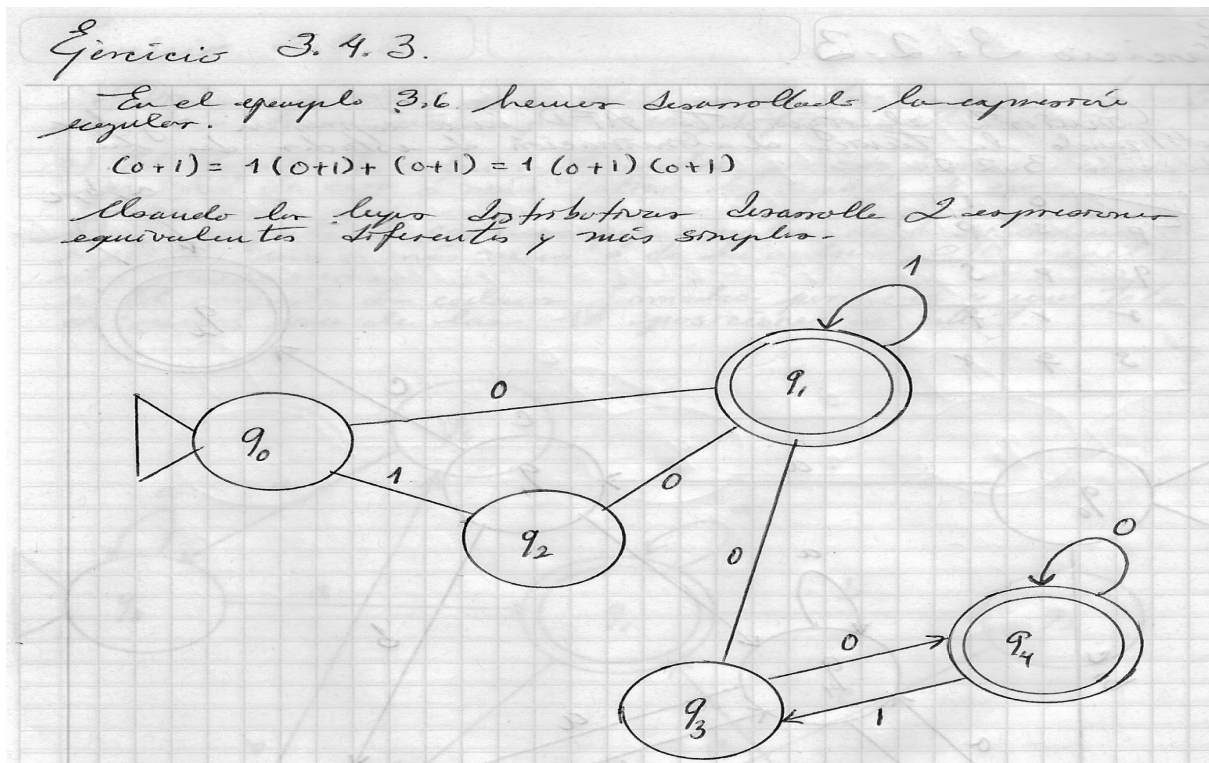 Ejercicio 3.4.3.
En el ejemplo 3.6 hemos desarrollado la expresión
regular.
(0+1) = 1 (0+1) + (0+1) = 1 (0+1) (0+1)
Usando las leyes distributivas desarrolle 2 expresiones
equivalentes diferentes y más simples.
1
0
q1
q0
1
0
q2
0
0
0
q4
q3
1